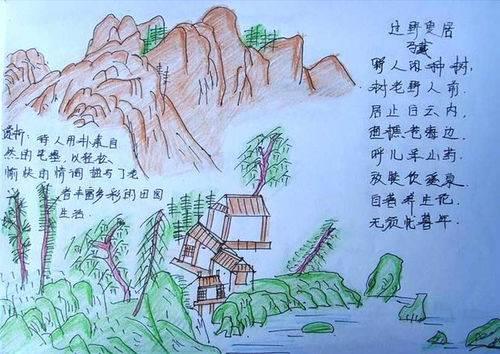 过野叟居
马戴
野人闲种树,
树老野人前.
居止白云内,
渔樵沧海边.
呼儿采山药,
放犊饮溪泉.
自著养生论,
无烦忧暮年.
赏析: 诗人用朴素自
然的笔墨, 以轻松
愉快的情调描写了老
者丰富多彩的田园
生活.